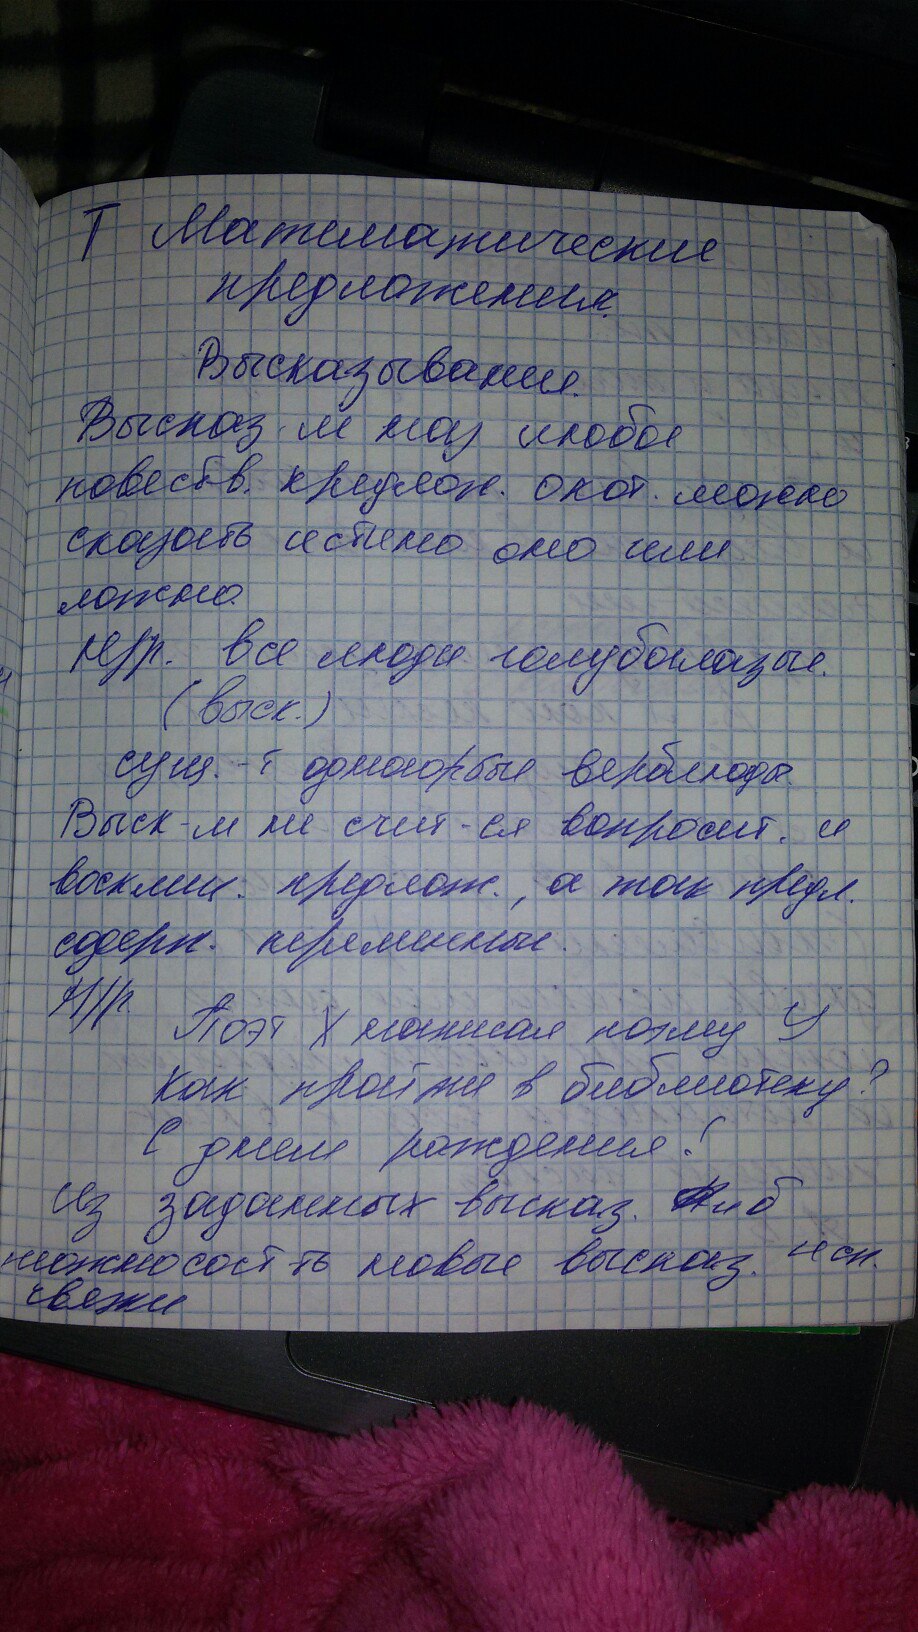 Т Математические
предложения.
Высказывания.
Высказ. м наз любое
повеств. предлож. о кот. можно
сказать истено оно или
ложно.
Н/р. все люди голубоглазые.
(выск.)
сущ.-т одногорбые верблюды.
Выск-м не счит-ся вопросит. и
восклиц. предлож., а так предл.
содерж. переменные.
Н/р.
Поэт X написал поэму У
Как пройти в библиотеку?
С днем рождения!
Из заданных высказ.
можно сост ть новые высказ. исп.
связки